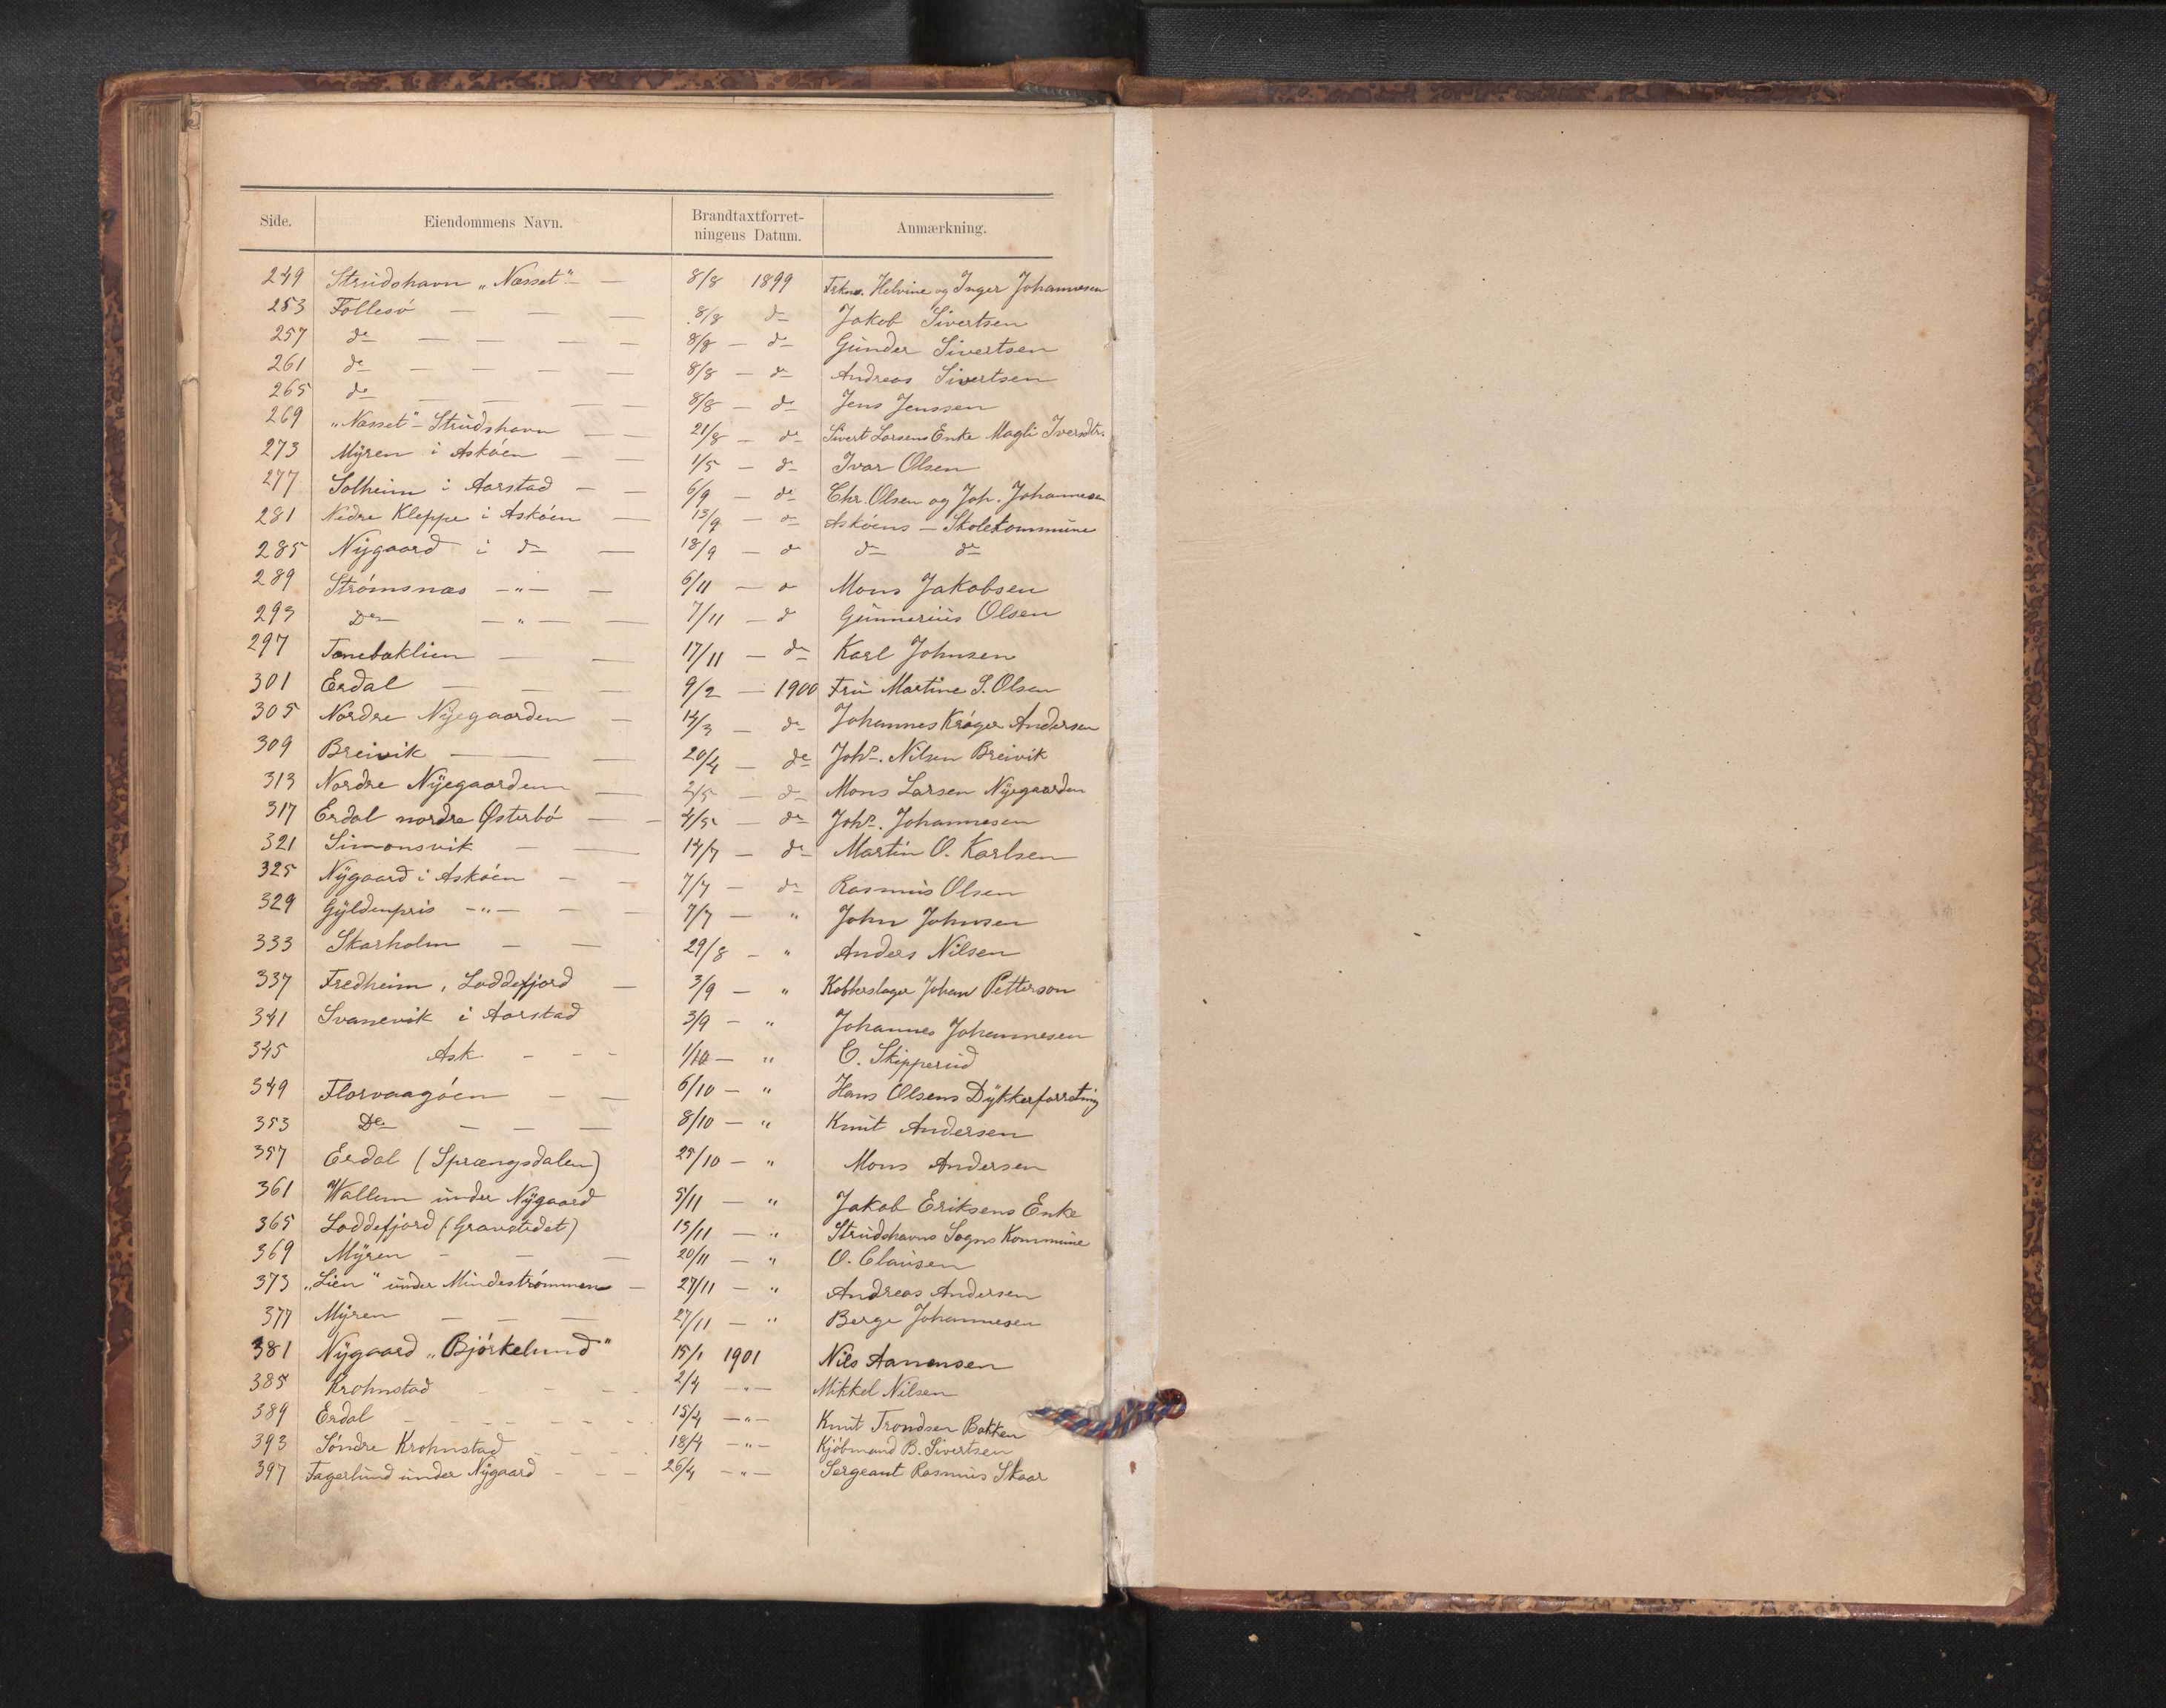 Side. Eiendommens Navn. Brandtaxtforret-ningens Datum. Anmærkning.
249 Strudshavn „Næsset" — 8/8 1899 Frkne. Helvine og Inger Johannesen
253 Follesö — — — 8/8 do Jakob Sivertsen
257 do — — — — 8/8 — do Gunder Sivertsen
261 do — — — — 8/8 — do Andreas Sivertsen
265 do — — — — 8/8 — do Jens Jenssen
269 „Næsset" – Strudshavn — — 21/8 — do Sivert Larsens Enke Magli Iversdtr.
273 Myren i Asköen — — 1/5 — do Ivar Olsen
277 Solheim i Aarstad — — 6/9 — do Chr. Olsen og Joh. Johannesen
281 Nedre Kleppe i Asköen — 13/9 — do Asköens — Skolekommune
285 Nygaard i do — 18/9 — do do do
289 Strömsnæs —"— — 6/11 — do Mons Jakobsen
293 Do —"— — — 7/11 — do Gunnerius Olsen
297 Tonebaklien — — 17/11 — do Karl Johnsen
301 Erdal — — — 9/2 — 1900 Fru Martine S. Olsen
305 Nordre Nyegaarden — 14/3 — do Johannes Kröger Andersen
309 Breivik — — — 20/4 — do Johs. Nilsen Breivik
313 Nordre Nyegaarden — 2/5 — do Mons Larsen Nyegaarden
317 Erdal nordre Østerbö — — 4/5 — do Johs. Johannesen
321 Simonsvik — — 14/7 — do Martin O. Karlsen
325 Nygaard i Asköen — — 7/7 — do Rasmus Olsen
329 Gyldenpris —"— — — 7/7 — " John Johnsen
333 Skarholm — — 29/8 — " Anders Nilsen
337 Fredheim, Loddefjord — 3/9 — " Kobberslager Johan Petterson
341 Svanevik i Aarstad 3/9 — " Johannes Johannesen
345 Ask — — — 1/10 — " C. Skipperud
349 Florvaagöen — — 6/10 — " Hans Olsens Dykkerforretning
353 Do — — — 8/10 — " Knut Andersen
357 Erdal (Sprængsdalen) 25/10 — " Mons Andersen
361 Wallem under Nygaard 5/11 — " Jakob Eriksens Enke
365 Loddefjord (Gravstedet) 13/11 — " Strudshavns Sogns Kommune
369 Myren — — — 20/11 — " O. Clausen
373 „Lien" under Mindeströmmen — 27/11 — " Andreas Andersen
377 Myren — — — 27/11 — " Berge Johannesen
381 Nygaard „Björkelund" 15/1 1901 Nils Aanensen
385 Krohnstad — — — 2/4 —"— Mikkel Nilsen
389 Erdal — — — — — — 15/4 —"— Knut Trondsen Bakken
393 Söndre Krohnstad — — — 18/4 —"— Kjöbmand B. Sivertsen
397 Fagerlund under Nygaard — — — 26/4 —"— Sergeant Rasmus Skaar